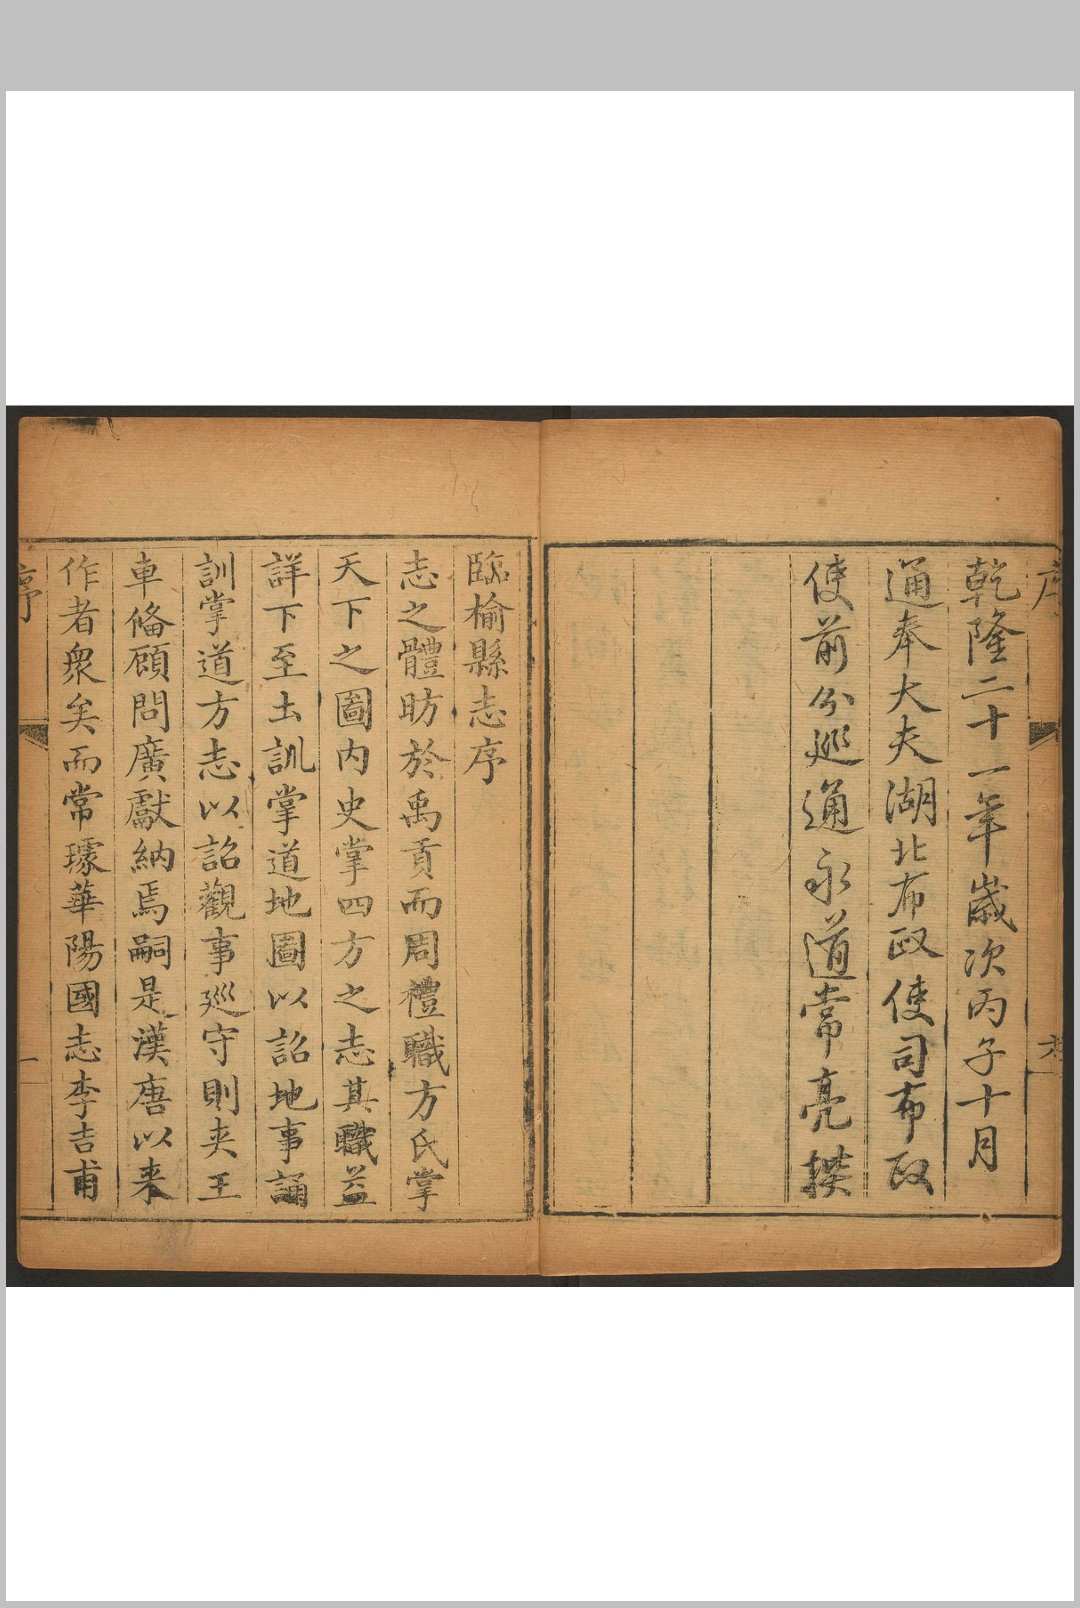 乾隆二十一年歲次丙子十月
通奉大夫湖北布政使司布政
使前分巡通永道常亮撰
臨榆縣志序
志之體昉於禹貢而周禮職方氏掌
天下之圖内史掌四方之志其職益
詳下至土訓掌道地圖以詔地事誦
訓掌道方志以詔觀事廵守則夹王
車俻顧問廣獻納焉嗣是漢唐以来
作者衆矣而常璩華陽國志李吉甫
序
一